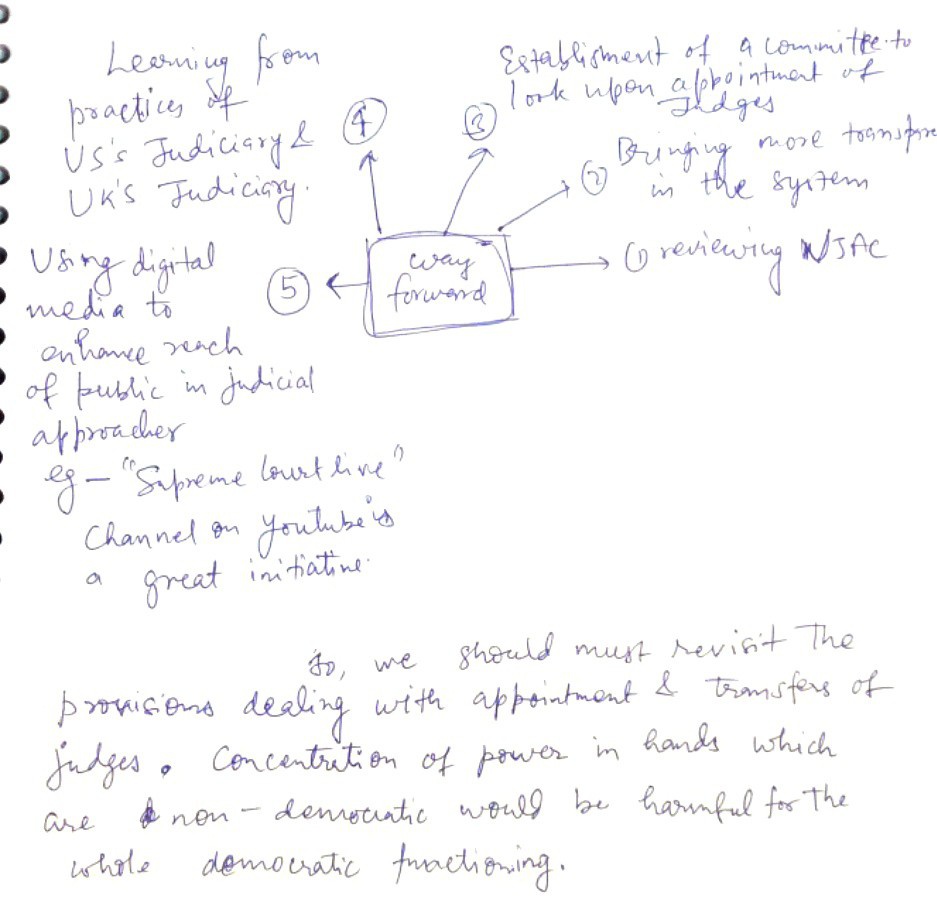 Learning from
practices of
US's Judiciary &
UK's Judiciary.
④
③
Establisment of a committee to
look upon appointment of
Judges
② Bringing more transpre
in the system
① reviewing NJAC
way
forward
⑤
Using digital
media to
enhance reach
of public in judicial
approaches
eg - "Supreme Court live"
Channel on Youtube is
a great initiative.
So, we should must revisit the
provisions dealing with appointment & transfers of
judges. Concentration of power in hands which
are non-democratic would be harmful for the
whole democratic functioning.